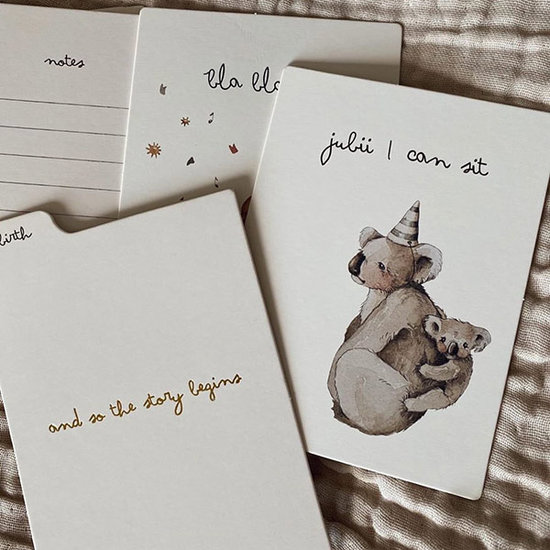 notes
bla bla
jubii I can sit
birth
and so the story begins